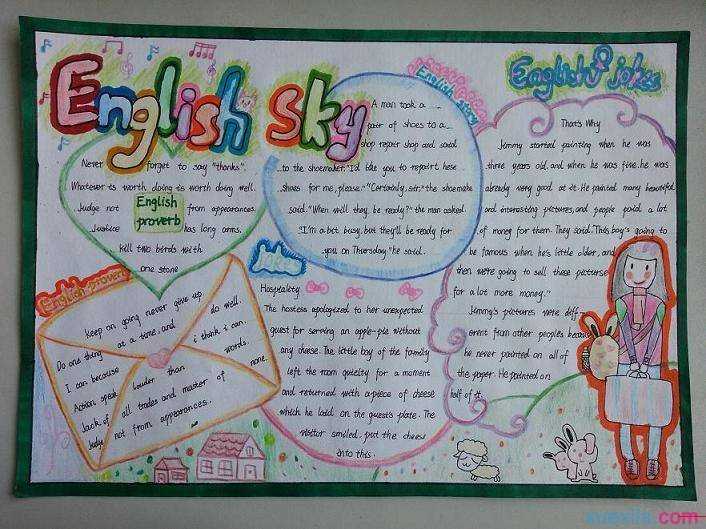 English sky
Never forget to say "thanks".
Whatever is worth doing is worth doing well.
Judge not from appearances.
English
proverb
Justice has long arms.
kill two birds with
one stone
English story
A man took a
pair of shoes to a
shop repair shop and said
to the shoemaker: "I'd like you to repairt hese
shoes for me, please." "Certainly, sir." the shoemake
said. "When will they be ready?" the man asked.
"I'm a bit busy, but they'll be ready for
you on Thursday," he said.
English jokes
That's Why
Jimmy started painting when he was
three years old, and when he was five, he was
already very good at it. He painted many beautiful
and interesting pictures, and people paid a lot
of money for them. They said, "This boy's going to
be famous when he's little older, and
then we're going to sell these pictures
for a lot more money."
Jimmy's pictures were diff-
erent from other peoples because
he never painted on all of
the paper. He painted on
half of it.
English proverb
Keep on going never give up
Do one thing at a time, and do well.
I can because i think i can.
Action speak louder than words.
Jack of all trades and master of none.
Judge not from appearances.
Jokes
Hospitality
The hostess apologized to her unexpected
guest for serving an apple-pie without
any cheese. The little boy of the family
left the room quietly for a moment
and returned with a piece of cheese
which he laid on the guest's plate. The
visitor smiled, put the cheese
into this.
xuexila.com